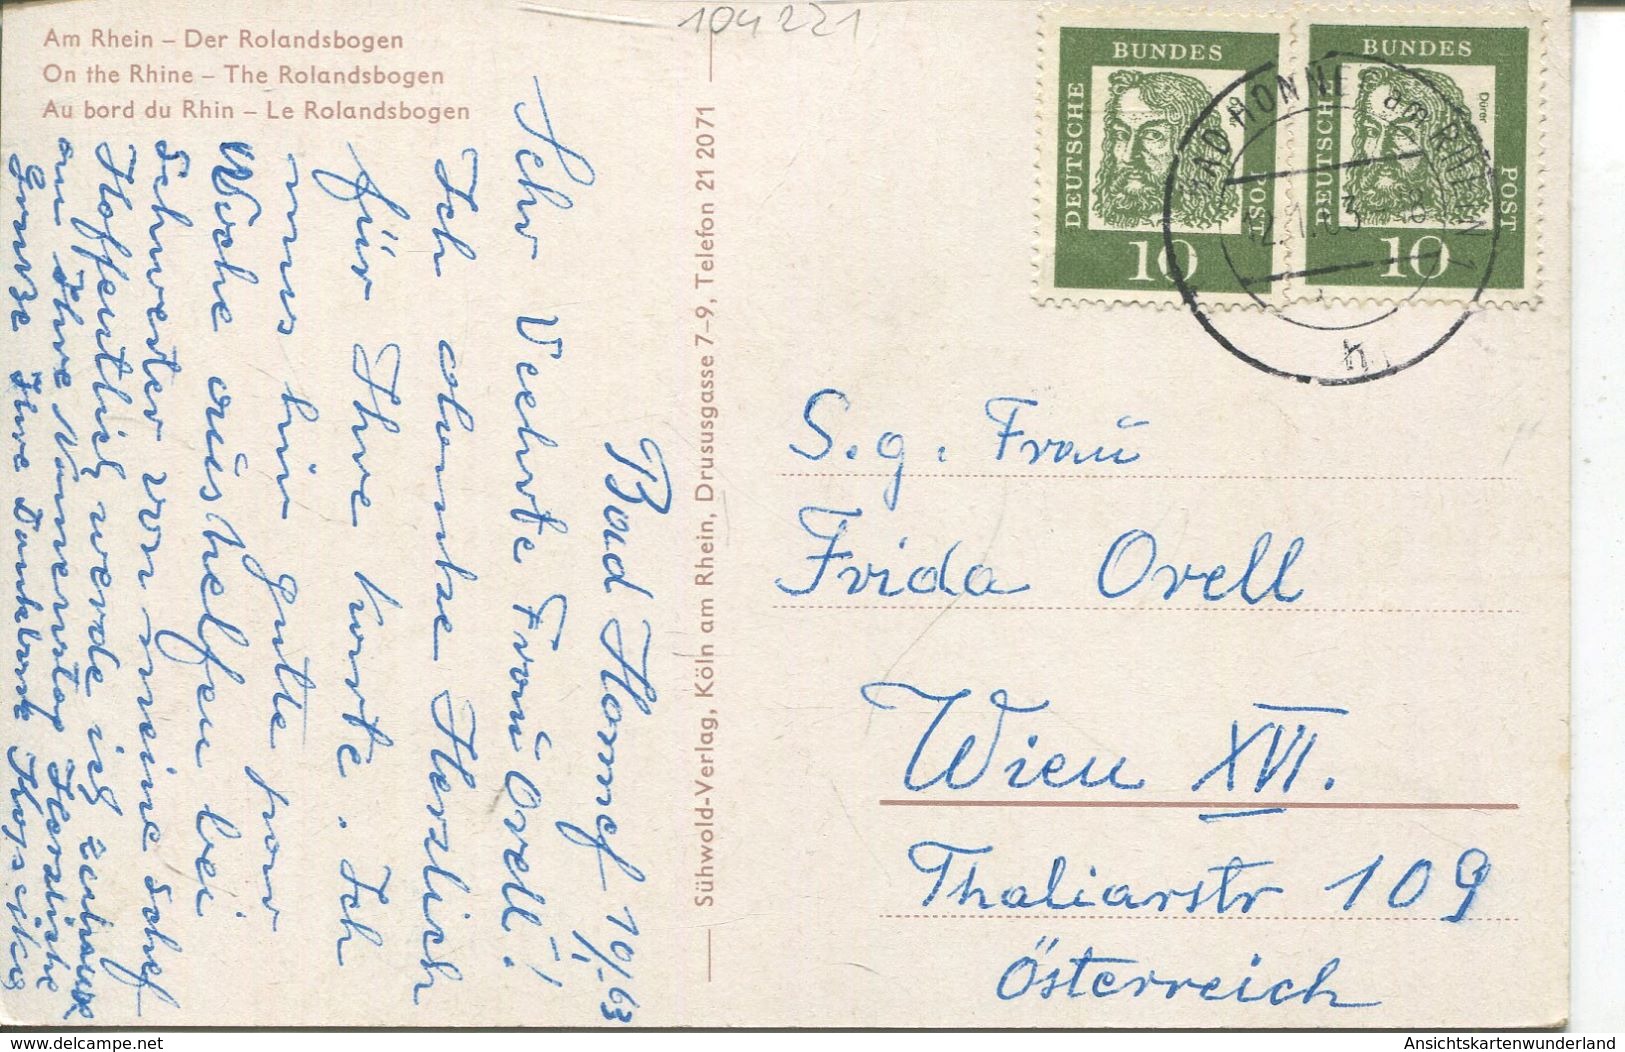 104221
Am Rhein – Der Rolandsbogen
On the Rhine – The Rolandsbogen
Au bord du Rhin – Le Rolandsbogen
Bad Honnef 10/1. 63
Sehr Veehrte Frau Orell!
Ich danke Herzlich
für Ihre Karte. Ich
mus hin gute par
Woche aushelfen bei
Schwester von meine Schef
Hoffentlich werde ich zuhause
am Ihre Namenstag Herzliche
Grüße Ihre Dankbare
Sühwold-Verlag, Köln am Rhein, Drususgasse 7–9, Telefon 21 20 71
DEUTSCHE BUNDES POST
10
DEUTSCHE BUNDES POST
Dürer
10
BAD HONNEF am RHEIN 1
12.1.63
h
S. g. Frau
Frida Orell
Wien XVI.
Thaliarstr 109
Österreich
delcampe.net
Ansichtskartenwunderland